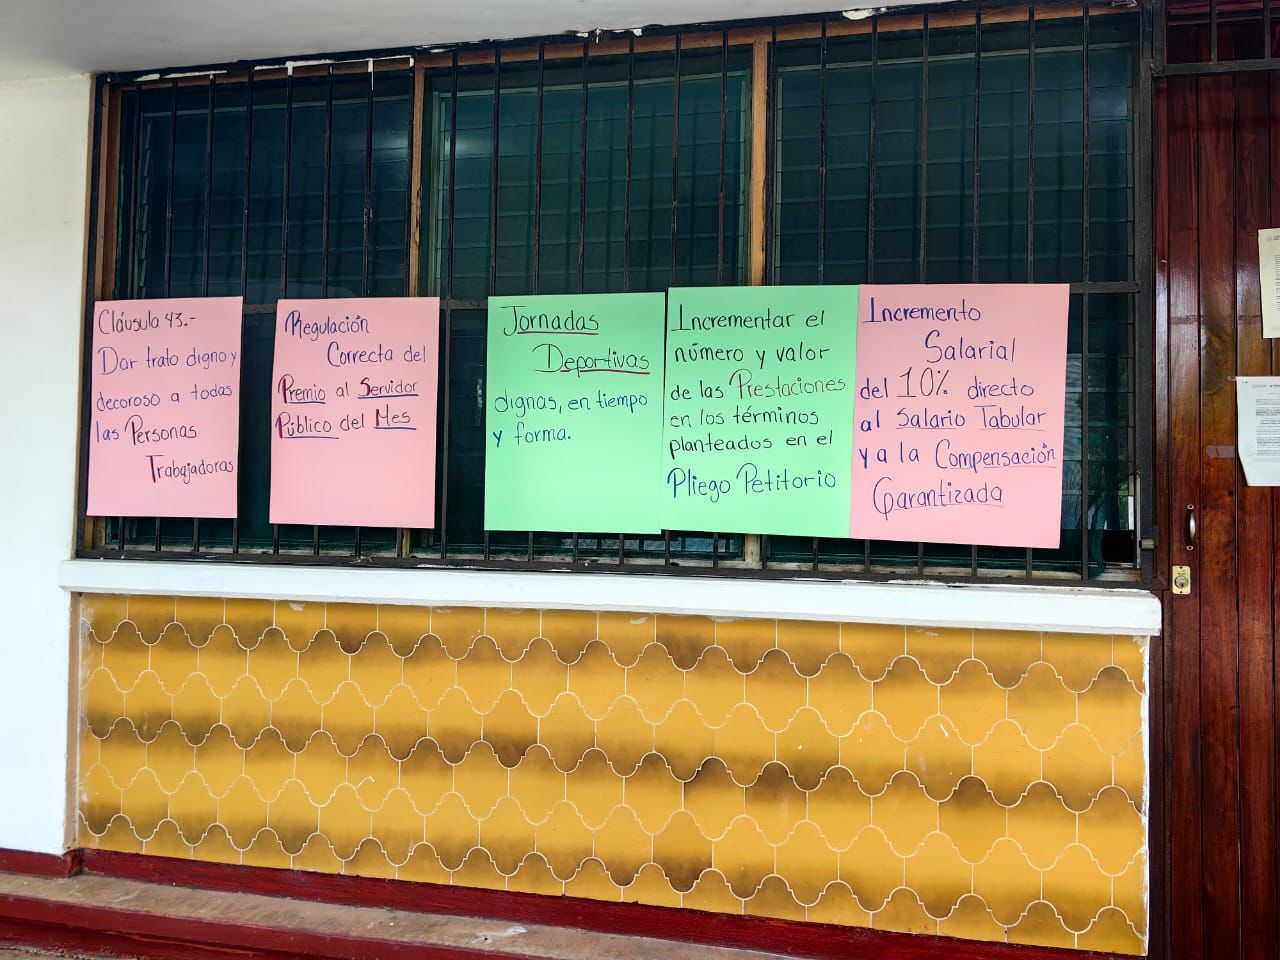 Cláusula 43.-
Dar trato digno y
decoroso a todas
las Personas
Trabajadoras
Regulación
Correcta del
Premio al Servidor
Público del Mes
Jornadas
Deportivas
dignas, en tiempo
y forma.
Incrementar el
número y valor
de las Prestaciones
en los términos
planteados en el
Pliego Petitorio
Incremento
Salarial
del 10% directo
al Salario Tabular
y a la Compensación
Garantizada